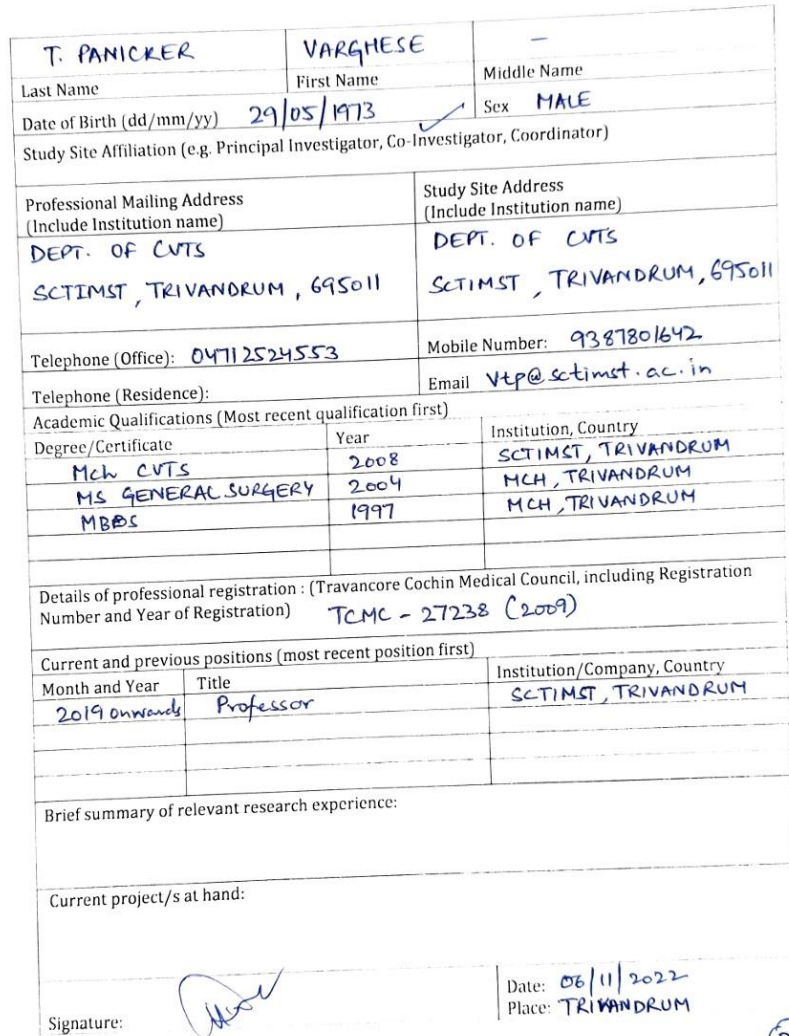 T. PANICKER VARGHESE –
Last Name First Name Middle Name
Date of Birth (dd/mm/yy) 29/05/1973 Sex MALE
Study Site Affiliation (e.g. Principal Investigator, Co-Investigator, Coordinator)
Professional Mailing Address
(Include Institution name)
DEPT. OF CVTS
SCTIMST, TRIVANDRUM, 695011
Study Site Address
(Include Institution name)
DEPT. OF CVTS
SCTIMST, TRIVANDRUM, 695011
Telephone (Office): 04712524553
Mobile Number: 9387801642
Telephone (Residence):
Email vtp@sctimst.ac.in
Academic Qualifications (Most recent qualification first)
Degree/Certificate Year Institution, Country
Mch CVTS 2008 SCTIMST, TRIVANDRUM
MS GENERAL SURGERY 2004 MCH, TRIVANDRUM
MBBS 1997 MCH, TRIVANDRUM
Details of professional registration : (Travancore Cochin Medical Council, including Registration
Number and Year of Registration) TCMC - 27238 (2009)
Current and previous positions (most recent position first)
Month and Year Title Institution/Company, Country
2019 onwards Professor SCTIMST, TRIVANDRUM
Brief summary of relevant research experience:
Current project/s at hand:
Signature:
Date: 06/11/2022
Place: TRIVANDRUM